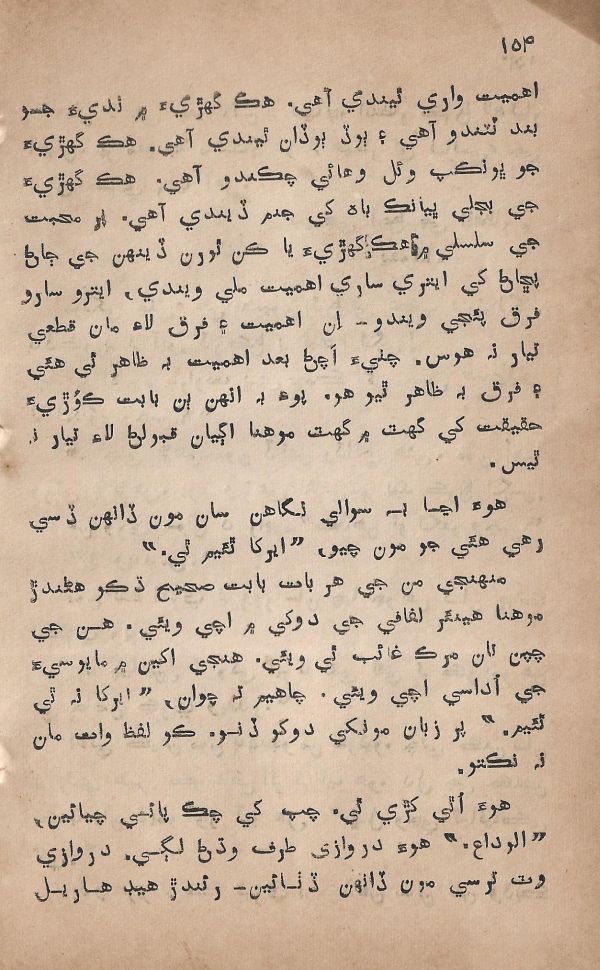 ۱۵۴
اهميت واري ٿيندي آهي. هڪ گهڙيءَ ۾ نديءَ جـو
بند ٽٽندو آهي ۽ ٻوڏ ٻوڏان ٿيندي آهي. هڪ گهڙيءَ
جو ڀونڪپ وئل وهائي ڇڪندو آهي. هڪ گهڙيءَ
جي بجلي ڀيانڪ باہ کي جنم ڏيندي آهي. پر محبت
جي سلسلي ۾ هڪ گهڙيءَ يا ڪن ٿورن ڏينهن جي ڄاڻ
پڇاڻ کي ايتري ساري اهميت ملي ويندي، ايترو سارو
فرق پئجي ويندو ــ اِن اهميت ۽ فرق لاءِ مان قطعي
تيار نہ هوس. چٺيءَ اَچڻ بعد اهميت بہ ظاهر ٿي هئي
۽ فرق بہ ظاهر ٿيو هو. پوءِ بہ انهن ٻن بابت ڪوُڙيءَ
حقيقت کي گهٽ ۾ گهٽ موهنا اڳيان قبولڻ لاءِ تيار نہ
ٿيس.
هوءَ اڃـا بـہ سوالي نـگاهن سان مون ڏانهن ڏسي
رهي هئي جو مون چيو، ”اپرکا ٿئيم ٿي.“
منهنجي من جي هر بات بابت صحيح ڌڪو هڻندڙ
موهنا هينئر لفافي جي دوکي ۾ اچي ويئي. هـن جي
چپن تان مرڪ غائب ٿي ويئي. هنجي اکين ۾ مايوسيءَ
جي اُداسي اچي ويئي. چاهيم تہ چوان، ”اپرکا نہ ٿي
ٿئيم.“ پر زبان مونکي دوکو ڏنـو. ڪو لفظ وات مان
نہ نڪتو.
هوءَ اُٿي کڙي ٿي. چپ کي چڪ پائـي چيائين،
”الوداع.“ هوءَ دروازي طرف وڌڻ لڳـي. دروازي
وٽ ترسي مون ڏانهن ڏٺـائين ــ رئندڙ هيڊ هـاريـل